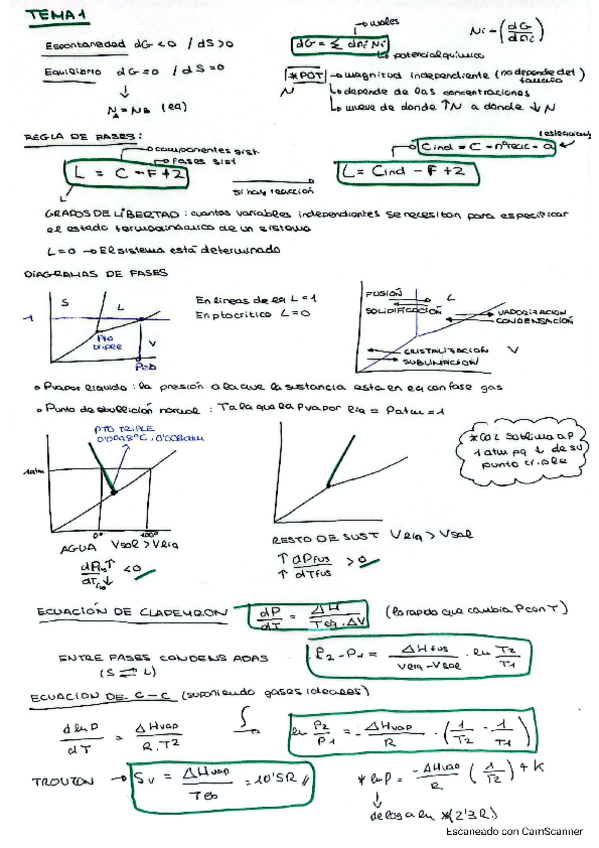 TEMA 1
Espontaneidad dG < 0 / dS > 0
dG = Σ dni Ni
moles
potencial químico
Ni = (dG/dni)
Equilibrio dG = 0 / dS = 0
NA = NB (eq)
*POT → magnitud independiente (no depende del tamaño)
N
↳ depende de las concentraciones
↳ mueve de donde ↑N a donde ↓N
REGLA DE FASES:
componentes sist.
fases sist
L = C - F + 2
si hay reacción
L = Cind - F + 2
Cind = C - nºreac - a
GRADOS DE LIBERTAD: cuantas variables independientes se necesitan para especificar
el estado termodinámico de un sistema
L=0 → El sistema está determinado
DIAGRAMAS DE FASES
S
L
V
1
Pto triple
Peb
En líneas de eq L = 1
En pto crítico L = 0
FUSIÓN
SOLIDIFICACIÓN
L
VAPORIZACIÓN
CONDENSACIÓN
CRISTALIZACIÓN
SUBLIMACIÓN
V
Pvapor líquido: la presión a la que la sustancia esta en eq con fase gas
Punto de ebullición normal: T a la que la Pvapor liq = Patm = 1
PTO TRIPLE
0'0098ºC, 0'006atm
1atm
0º
100º
AGUA Vsol > Vliq
dPfus ↑ / dTfus ↓ < 0
RESTO DE SUST Vliq > Vsol
↑ dPfus / ↑ dTfus > 0
*CO2 sublima a P
1 atm pq ↓ de su
punto triple
ECUACIÓN DE CLAPEYRON
dP/dT = ΔH / Teq·ΔV
(lo rapido que cambia P con T)
ENTRE FASES CONDENSADAS
(S ⇌ L)
P2 - P1 = ΔHfus / Vliq - Vsol · ln T2/T1
ECUACION DE C-C (suponiendo gases ideales)
d ln P / dT = ΔHvap / R·T²
∫
ln P2/P1 = - ΔHvap/R · (1/T2 - 1/T1)
TROUTON → Sv = ΔHvap / Teb = 10'5R //
* ln P = -ΔHvap/R (1/T2) + K
de log a ln *(2'3R)
Escaneado con CamScanner